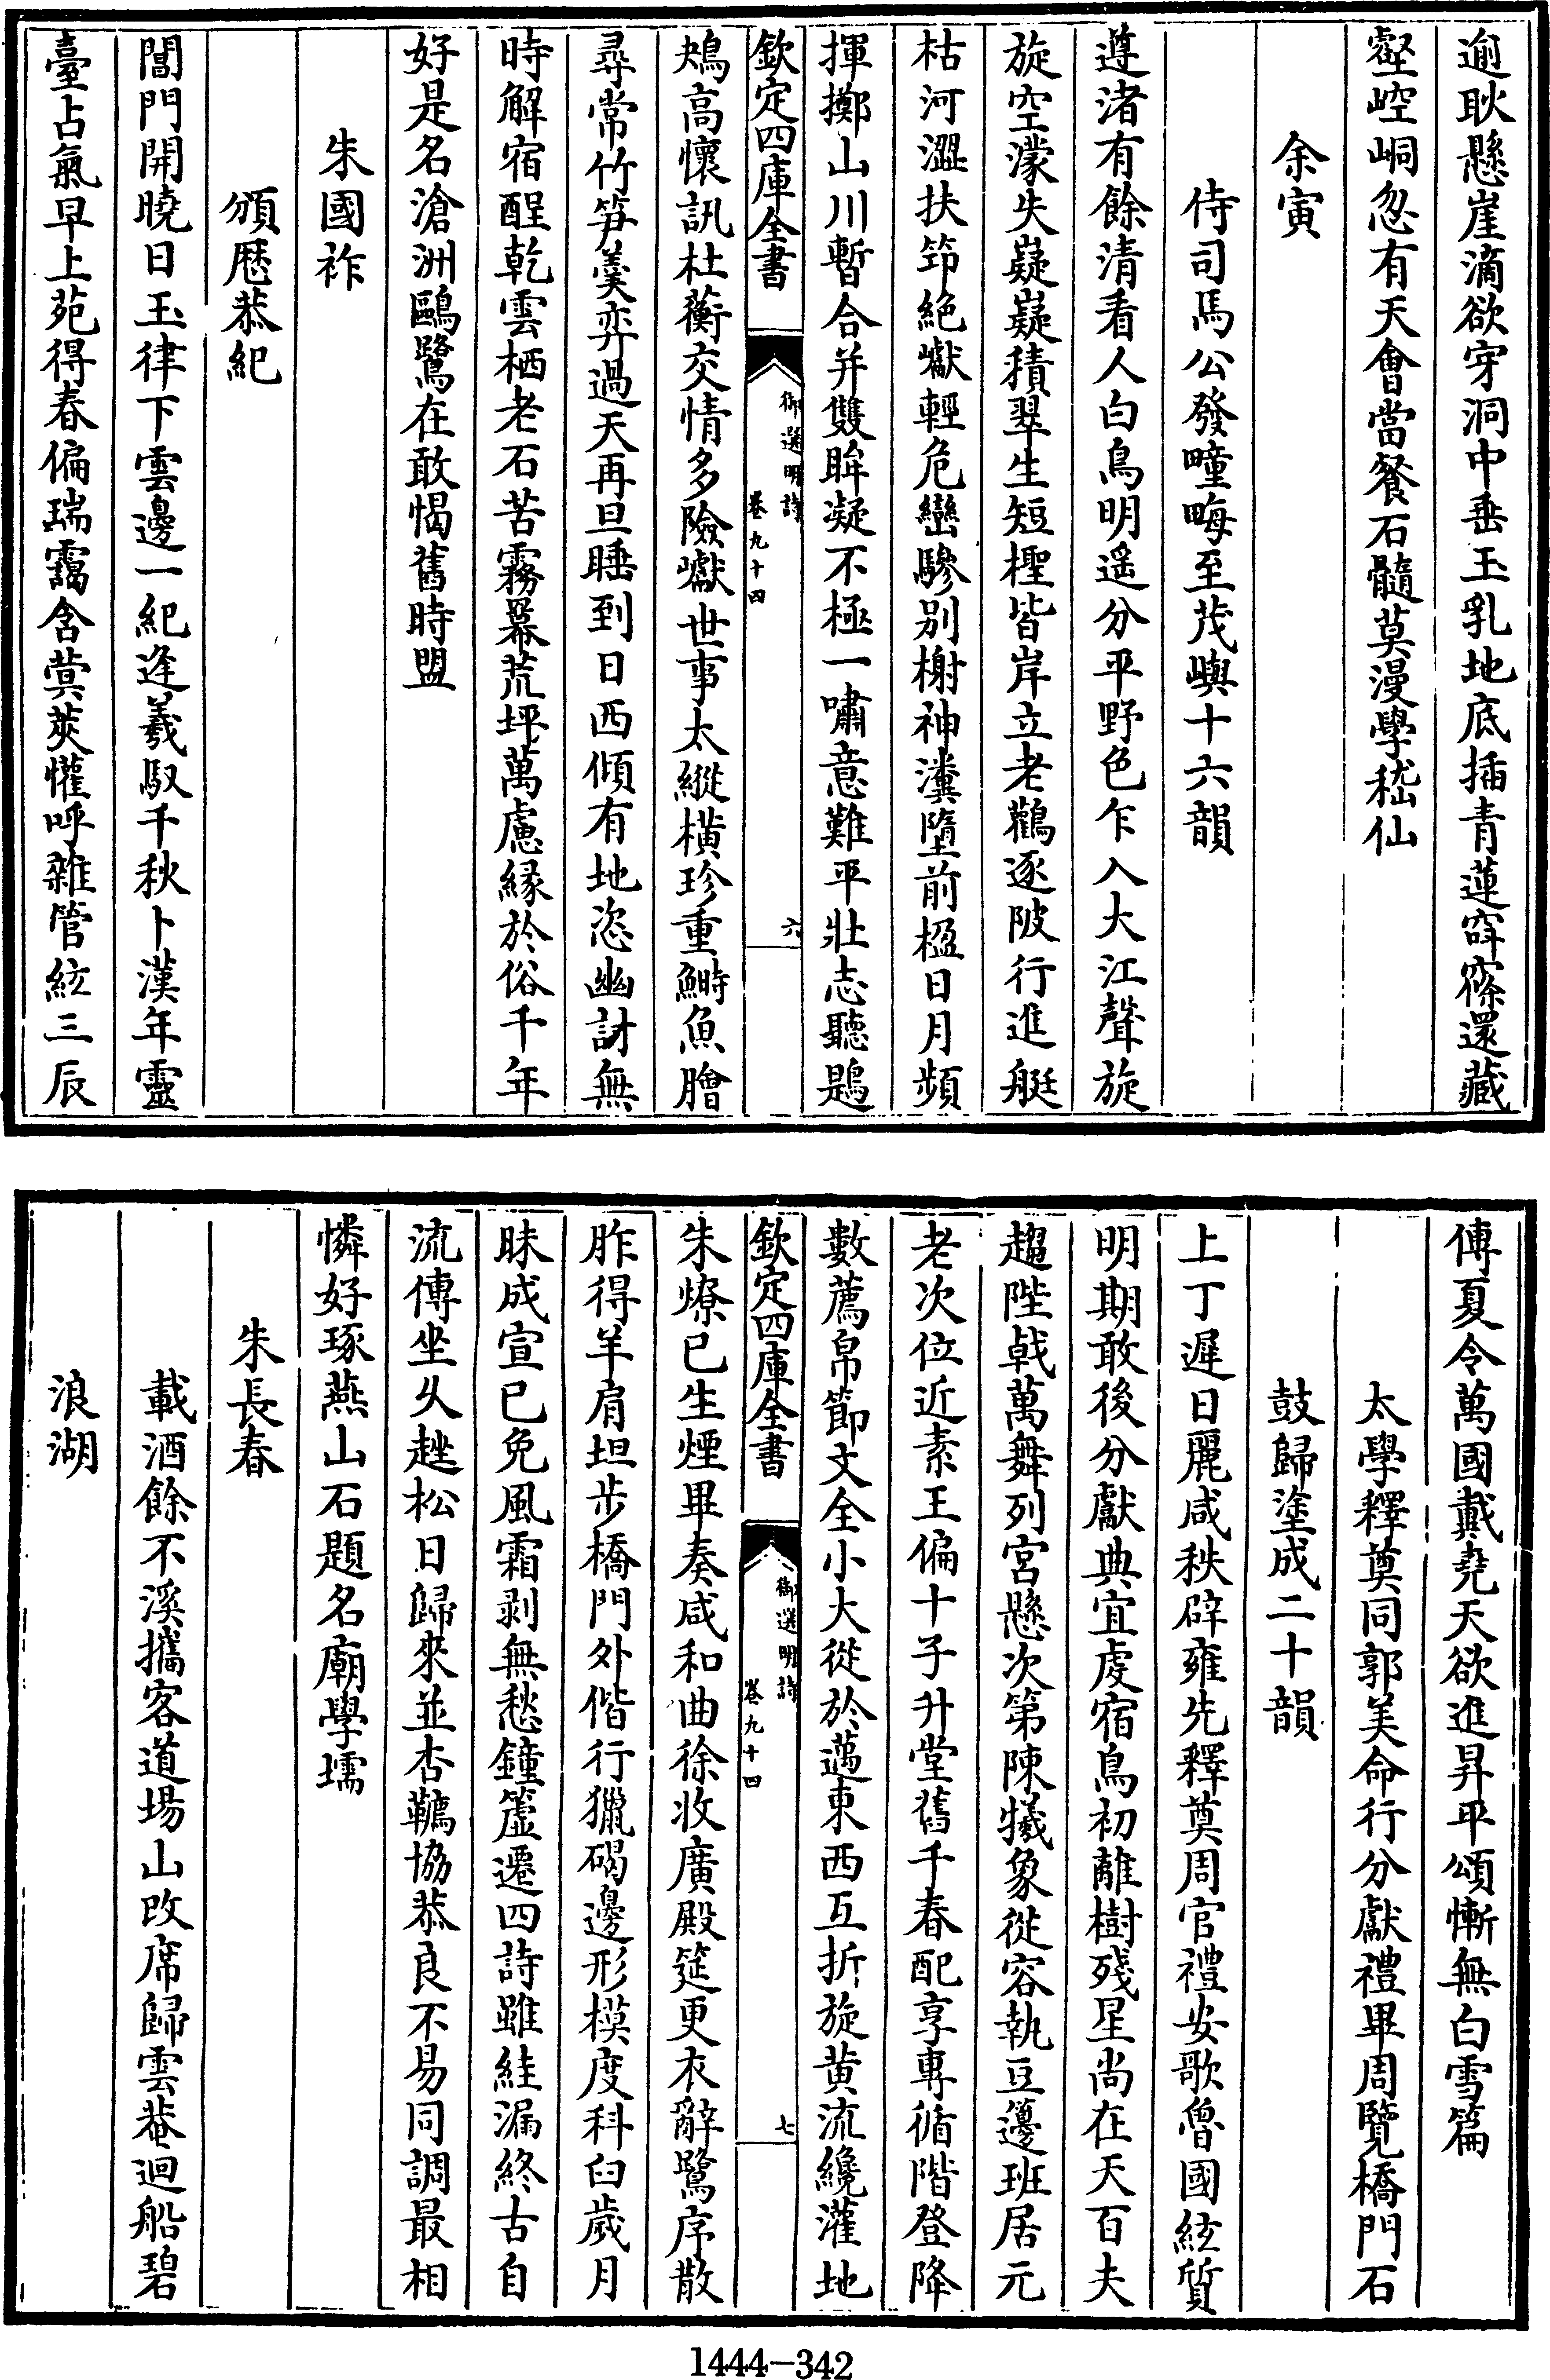 逾耿懸崖滴欲穿洞中垂玉乳地底插青蓮窅窱還藏
壑崆峒忽有天會當餐石髓莫漫學嵇仙
余寅
侍司馬公發疃畮至茂嶼十六韻
遵渚有餘清看人白鳥明遥分平野色乍入大江聲旋
旋空濛失嶷嶷積翠生短檉皆岸立老鸛逐陂行進艇
枯河澀扶筇絶巘輕危巒驂别榭神瀵墮前楹日月頻
揮擲山川暫合并雙眸凝不極一嘯意難平壯志聽鶗
欽定四庫全書
御選明詩
卷九十四
六
鴂高懷訊杜蘅交情多險巇世事太縱横珍重鰣魚膾
尋常竹笋羹弈過天再旦睡到日西傾有地恣幽討無
時解宿酲乾雲栖老石苦霧羃荒坪萬慮緣於俗千年
好是名滄洲鷗鷺在敢愒舊時盟
朱國祚
頒厯恭紀
閶門開曉日玉律下雲邊一紀逢羲馭千秋卜漢年靈
臺占氣早上苑得春偏瑞靄含蓂莢懽呼雜管絃三辰
傳夏令萬國戴堯天欲進昇平頌慚無白雪篇
太學釋奠同郭美命行分獻禮畢周覽橋門石
鼓歸塗成二十韻
上丁遲日麗咸秩辟雍先釋奠周官禮安歌魯國絃質
明期敢後分獻典宜虔宿鳥初離樹殘星尚在天百夫
趨陛戟萬舞列宫懸次第陳犧象從容執豆籩班居元
老次位近素王偏十子升堂舊千春配享專循階登降
數薦帛節文全小大從於邁東西互折旋黄流纔灌地
欽定四庫全書
御選明詩
卷九十四
七
朱燎已生煙畢奏咸和曲徐收廣殿筵更衣辭鷺序散
胙得羊肩坦步橋門外偕行獵碣邊形模度科臼歲月
昧成宣已免風霜剥無愁鐘簴遷四詩雖絓漏終古自
流傳坐乆趖松日歸來並杏韉協恭良不易同調最相
憐好琢燕山石題名廟學壖
朱長春
載酒餘不溪攜客道場山改席歸雲菴迴船碧
浪湖
1444-342